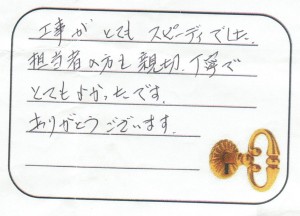 工事が とても スピーディでした.
担当者の方も親切、丁寧で
とてもよかったです.
ありがとうございます.